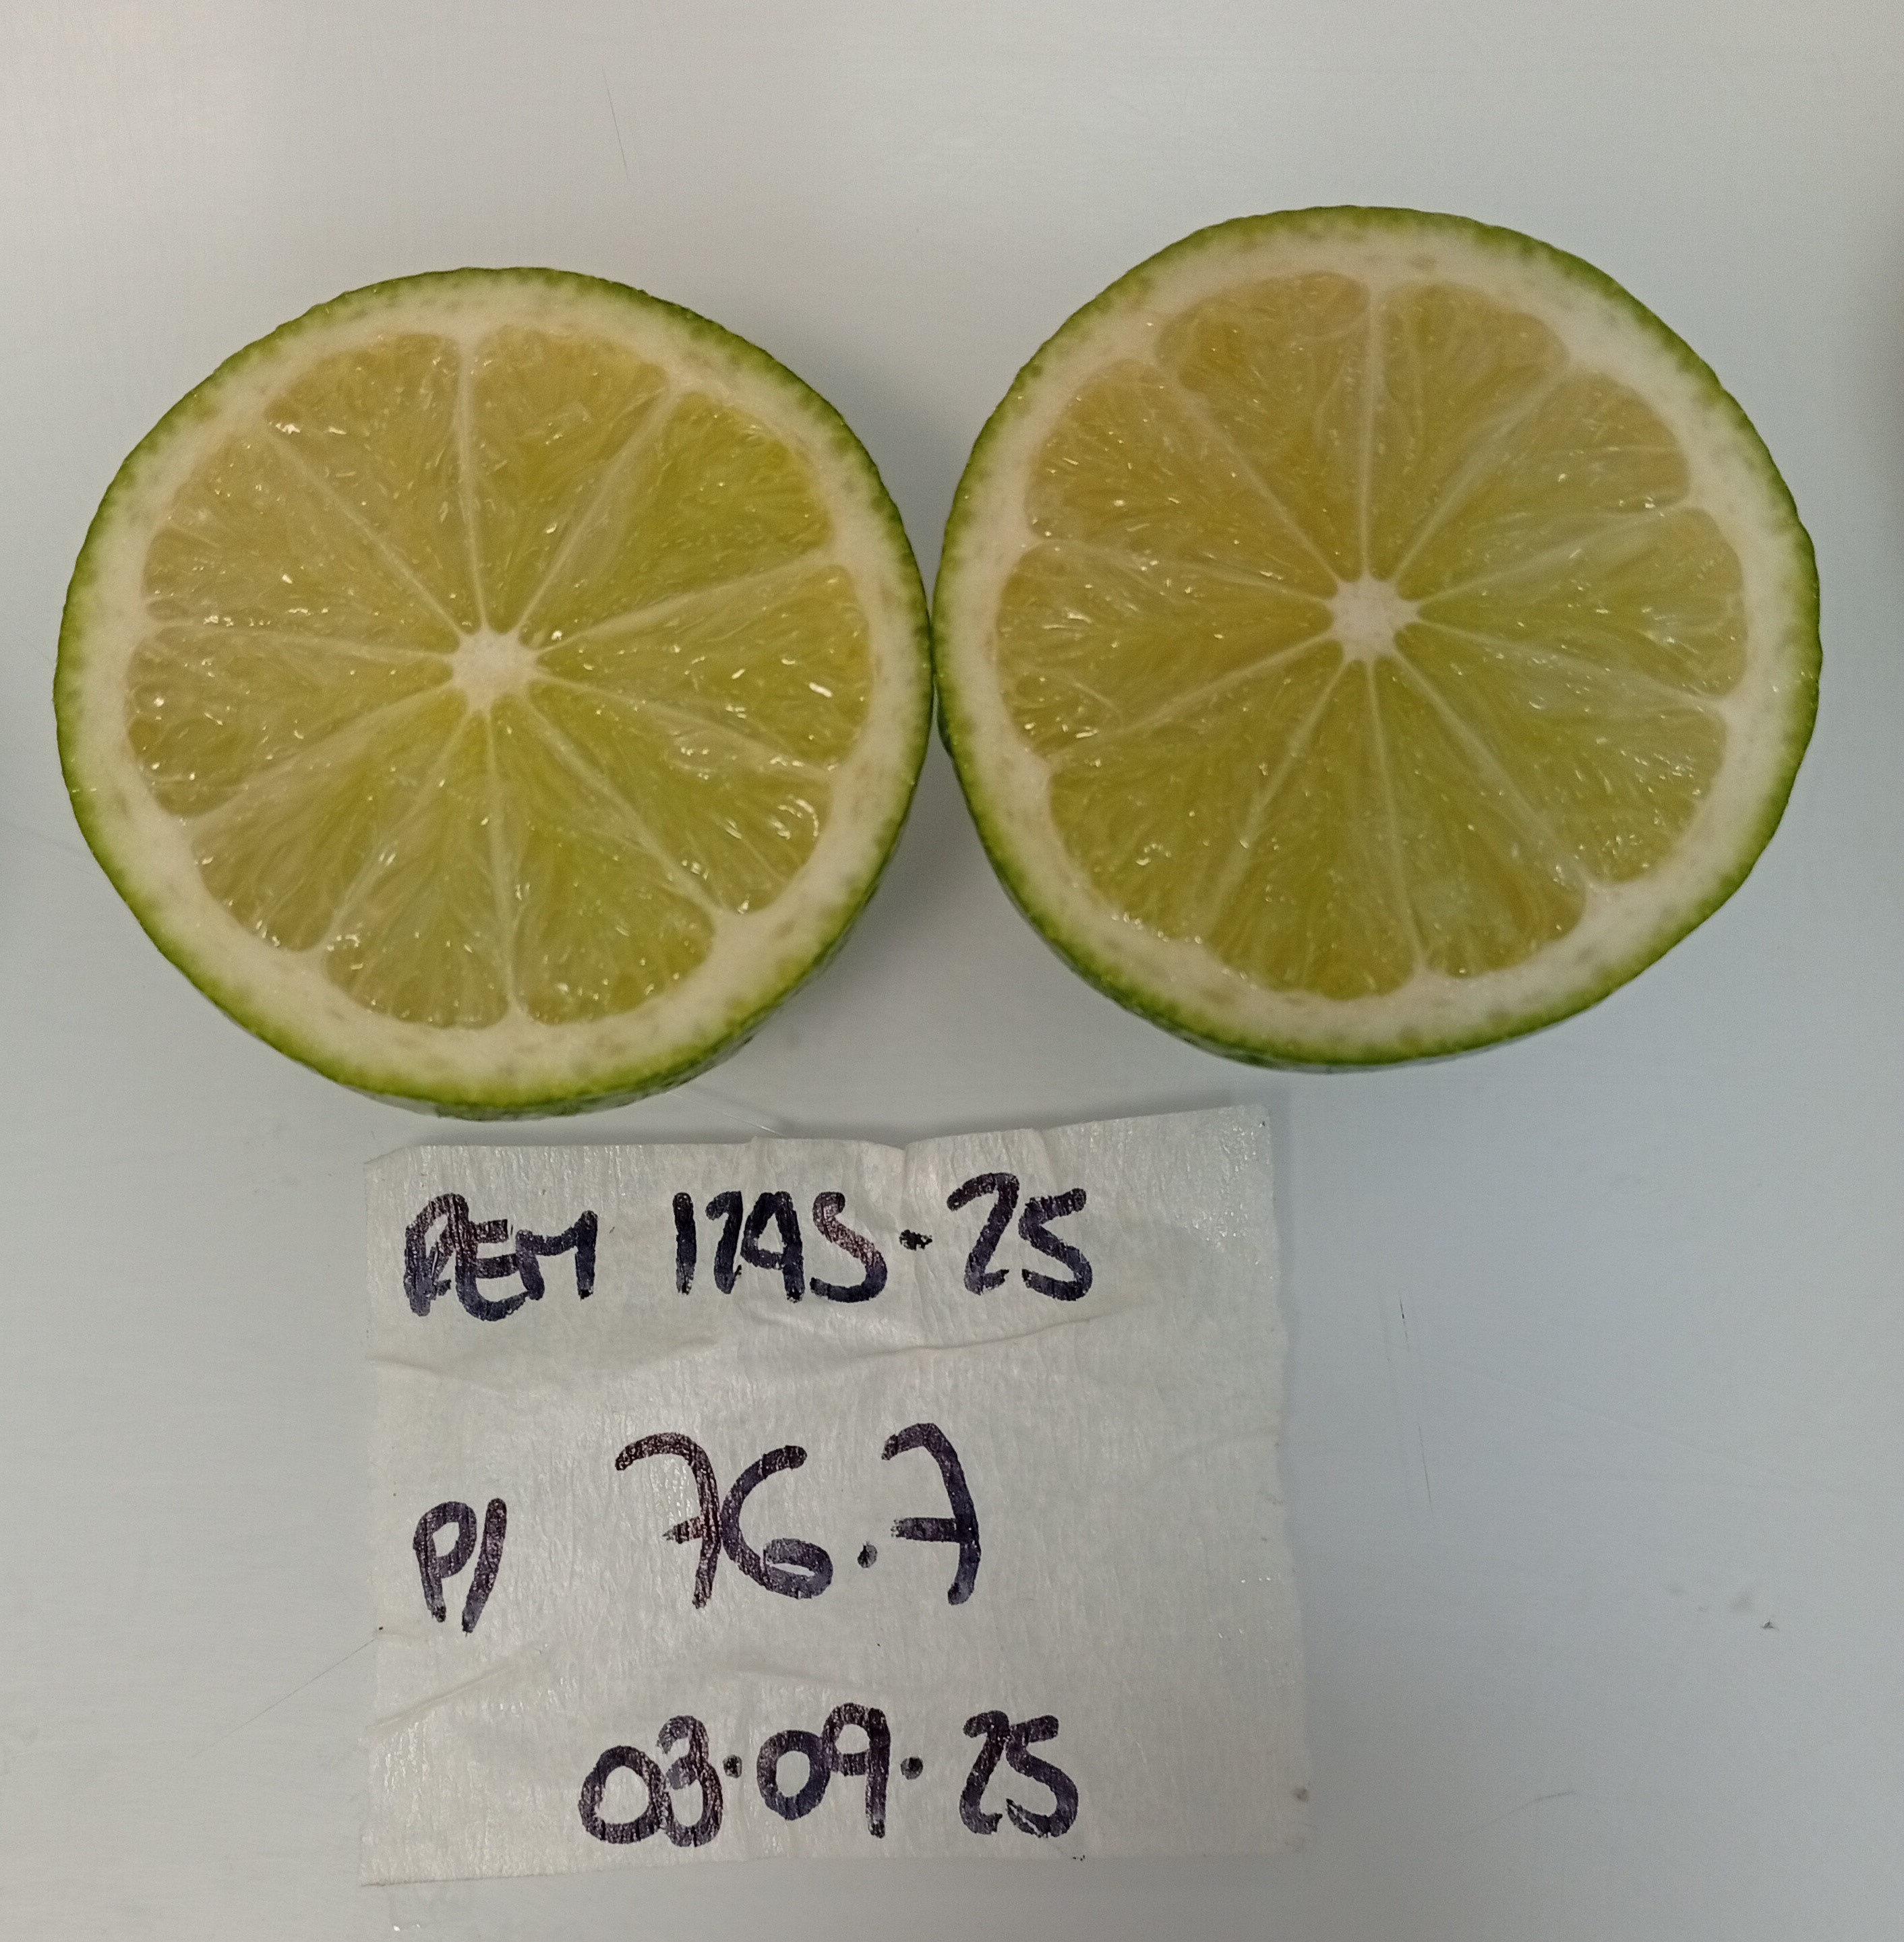 REM 1295-25
P/ 76.7
03.09.25